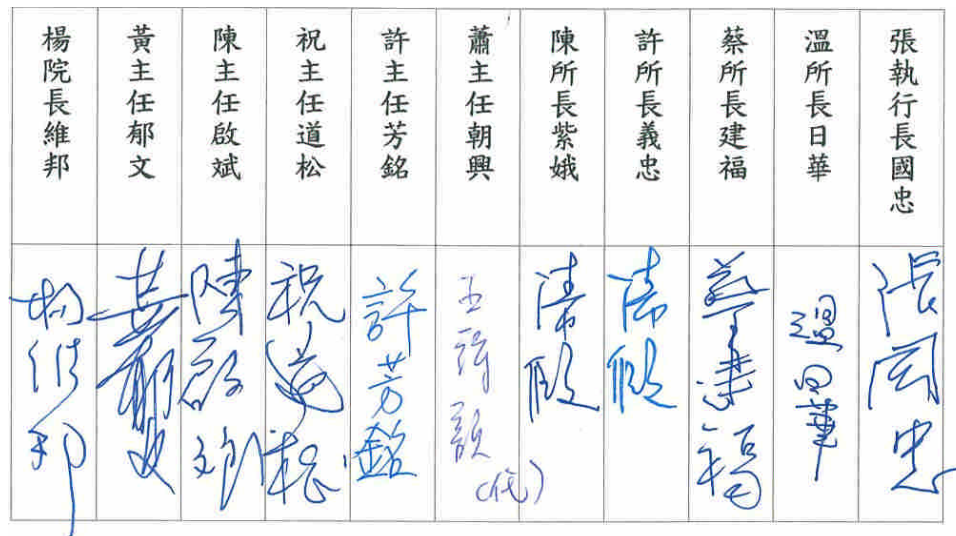 張執行長國忠
溫所長日華
蔡所長建福
許所長義忠
陳所長紫娥
蕭主任朝興
許主任芳銘
祝主任道松
陳主任啟斌
黃主任郁文
楊院長維邦
張國忠
溫日華
蔡建福
請假
請假
(代)
許芳銘
祝道松
陳啟斌
黃郁文
楊維邦